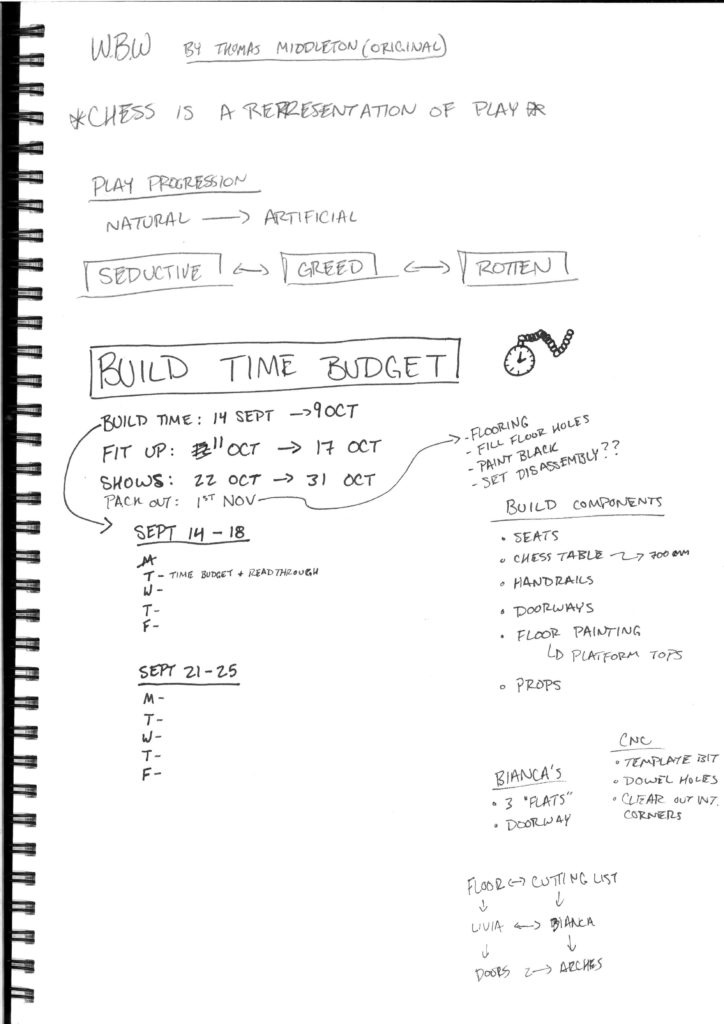 W.B.W BY THOMAS MIDDLETON (ORIGINAL)
*CHESS IS A REPRESENTATION OF PLAY*
PLAY PROGRESSION
NATURAL → ARTIFICIAL
SEDUCTIVE ↔ GREED ↔ ROTTEN
BUILD TIME BUDGET
BUILD TIME: 14 SEPT → 9 OCT
FIT UP: 11 OCT → 17 OCT
SHOWS: 22 OCT → 31 OCT
PACK OUT: 1ST NOV
- FLOORING
- FILL FLOOR HOLES
- PAINT BLACK
- SET DISASSEMBLY??
SEPT 14 - 18
M
T - TIME BUDGET + READ THROUGH
W -
T -
F -
SEPT 21 - 25
M -
T -
W -
T -
F -
BUILD COMPONENTS
• SEATS
• CHESS TABLE → 700MM
• HANDRAILS
• DOORWAYS
• FLOOR PAINTING
↳ PLATFORM TOPS
• PROPS
BIANCA'S
• 3 "FLATS"
• DOORWAY
CNC
• TEMPLATE BIT
• DOWEL HOLES
• CLEAR OUT INT.
CORNERS
FLOOR ↔ CUTTING LIST
↓ ↓
LIVIA ↔ BIANCA
↓ ↓
DOORS ↔ ARCHES